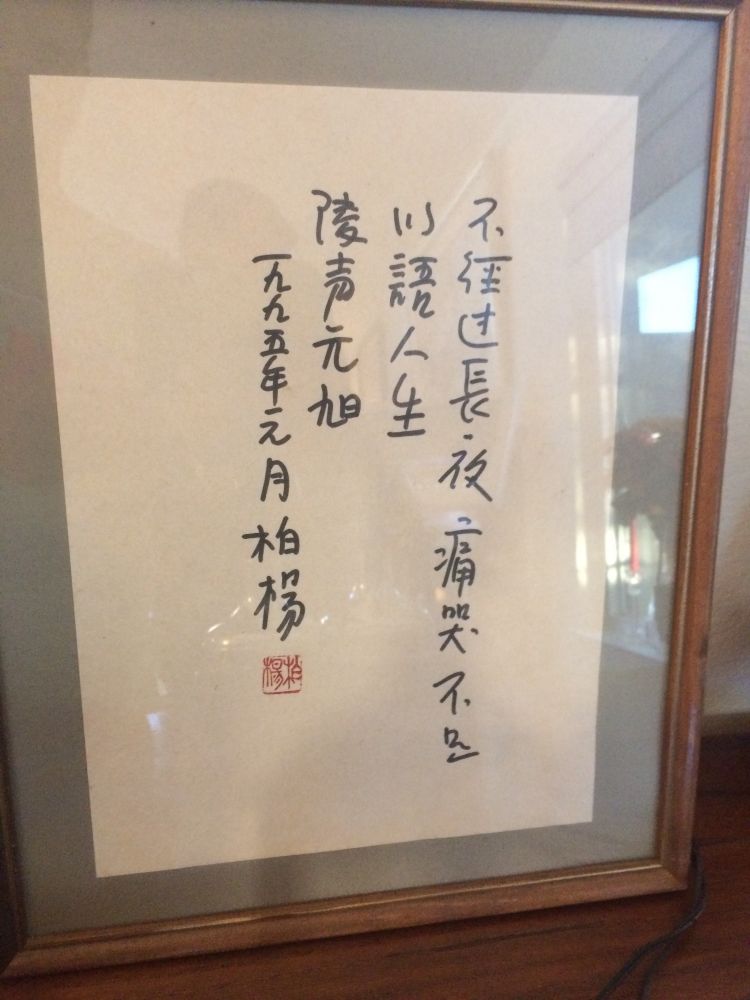 不徑过長夜痛哭不足
以語人生
陵青元旭
一九九五年元月柏楊
柏楊